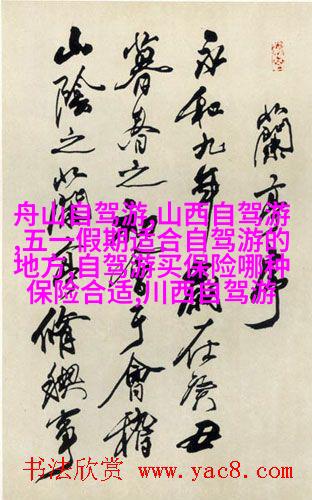 蘭亭序
永和九年歲在癸丑
暮春之初會于會稽
山陰之蘭亭脩禊事
舟山自驾游,山西自驾游
,五一假期适合自驾游的
地方,自驾游买保险哪种
保险合适,川西自驾游
书法欣赏 www.yac8.com